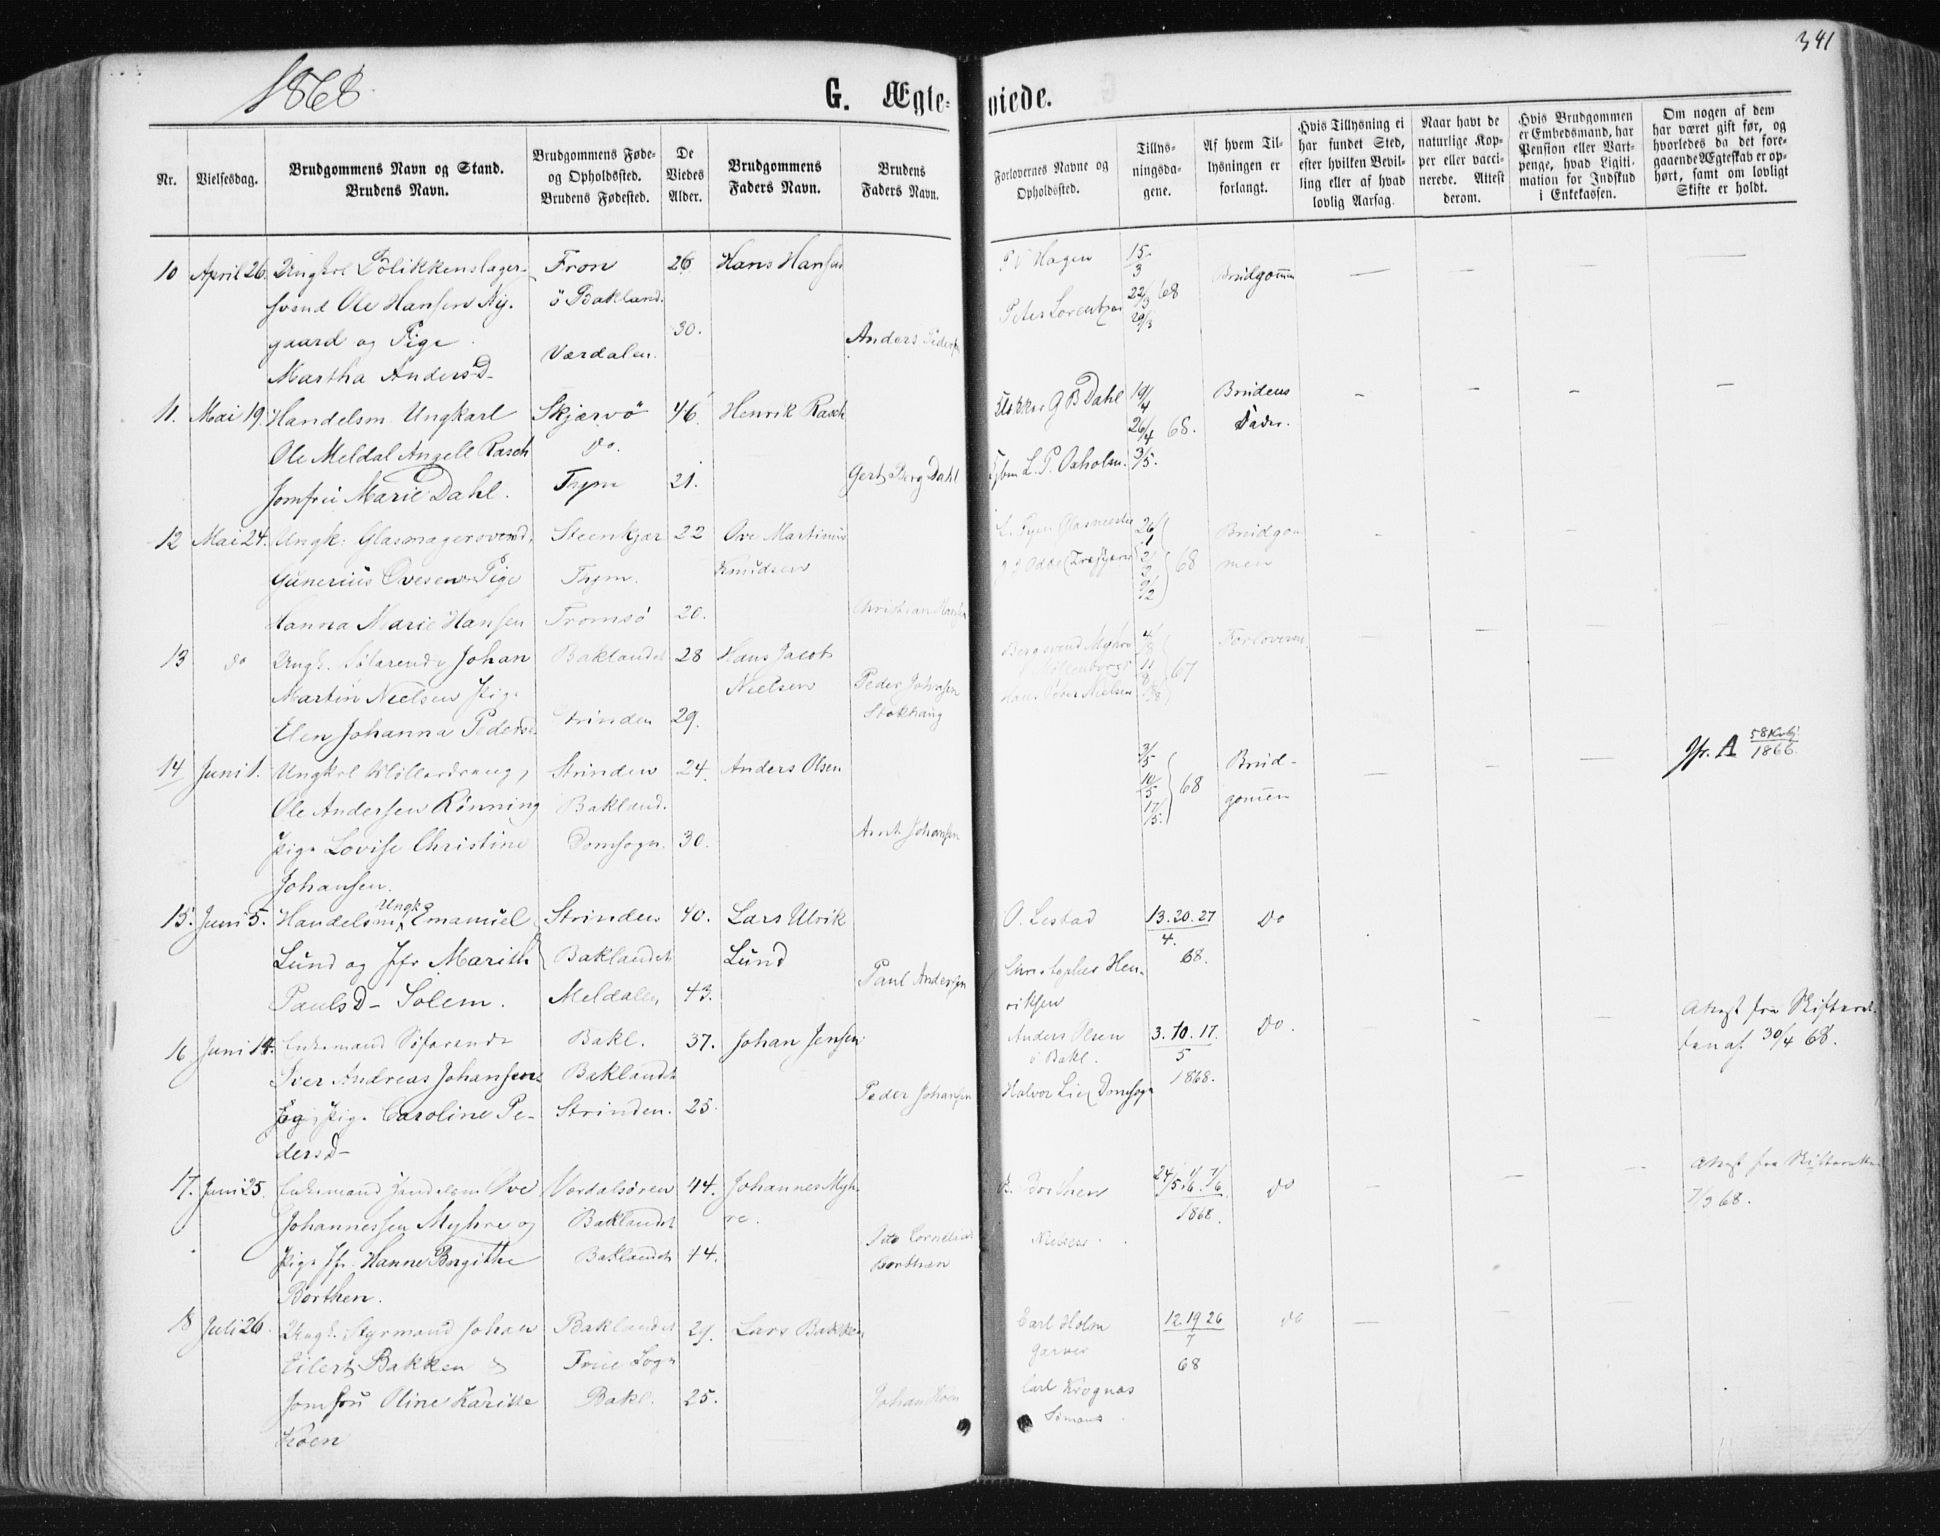 341
1868
G. Ægte-
viede.
Nr.
Vielsesdag.
Brudgommens Navn og Stand.
Brudens Navn.
Brudgommens Føde-
og Opholdssted.
Brudens Fødested.
De
Viedes
Alder.
Brudgommens
Faders Navn.
Brudens
Faders Navn.
Forlovernes Navne og
Opholdssted.
Tillys-
ningsda-
gene.
Af hvem Til-
lysningen er
forlangt.
Hvis Tillysning ei
har fundet Sted,
efter hvilken Bevil-
ling eller af hvad
lovlig Aarsag.
Naar havt de
naturlige Kop-
per eller vacci-
nerede. Attest
derom.
Hvis Brudgommen
er Embedsmand, har
Pension eller Vart-
penge, hvad Ligiti-
mation for Indskud
i Enkekassen.
Om nogen af dem
har været gift før, og
hvorledes da det fore-
gaaende Ægteskab er op-
hørt, samt om lovligt
Skifte er holdt.
10 April 26. Ungkrl Blikkenslager- Fron 26 Hans Hansen
svend Ole Hansen Ny- Bakland.
gaard og Pige 30. Anders Peders
Martha AndersD- Værdalen.
Hagen 15/3 22/3 68 29/3 Brudgommen
Peter Lorentzen
11. Mai 19. Handelsm. Ungkarl Skjærvö 46. Henrik Rasch
Ole Meldal Angell Rasch do.
Jomfru Marie Dahl. Thjm 21. Gert Berg Dahl
G B Dahl 19/4 26/4 68. 3/5. Brudens
L. P. Oxholm. Fader.
12 Mai 24. Ungk: Glasmagersvend, Steenkjær 22 Ove Martinus
Gunerius Ovesen Pige Thjm. Knudsen
Hanna Marie Hansen Tromsö 20. Christian Hansen
Glasmester 26/1 2/2 9/2 68 Brudgom
men
13 do Ungk. Söfarende Johan Baklandet 28 Hans Jacob
Martin Nielsen Pige Nielsen Peder Johnsen
Elen Johanna Peders Strinden 29. Stokhaug
4/8 11/8 67 Forloveren
Peter Nielsen
14 Juni 1. Ungkrl Møllerdreng, Strinden 24. Anders Olsen
Ole Andersen Rönning Bakland.
Pige Lovise Christine Domsogn. 30. Arnt Johansen
Johansen.
3/5 10/5 17/5. 68 Brud-
gomen
Jfr. A 58 1866.
15. Juni 5. Handelsm. Ungk Emanuel Strinden 40. Lars Ulrik
Lund og Jfr Marith Baklandet Lund
PaulsD- Solem. Meldalen 43. Paul Andersen
O. Lestad 13. 20. 27/4. 68. Do
Christopher Hen-
riksen
16 Juni 14. Enkemand Söfarende Bakl. 37. Johan Jensen
Iver Andreas Johansen Baklandet
og Pige Caroline Pe- Strinden. 25. Peder Johansen
dersd-
Anders Olsen 3. 10. 17/5 1868. Do.
Bakl.
Halvor Lie Domsogn
Attest fra Skifteret-
ten af 30/4 68.
17. Juni 25. Enkemand Handelsm Ove Verdalsören 44. Johannes Myh-
Johannessen Myhre og Baklandet re.
Pige Jfr. Hanne Birgitthe Baklandet 44. Cornelius
Borthen. Borthen
Borthen 24/5 1/6. 7/6 1868. do
Nielsen
Attest fra Skifteretten
7/3 68.
18 Juli 26. Ungk. Styrmand Johan Baklandet 29. Lars Bakken
Eilert Bakken & Frue Sogn
Jomfru Oline Karitte Bakl. 25. Johan Koen
Koen
Carl Holm 12 19 26/7 68 do
Garver
Carl Krognæs